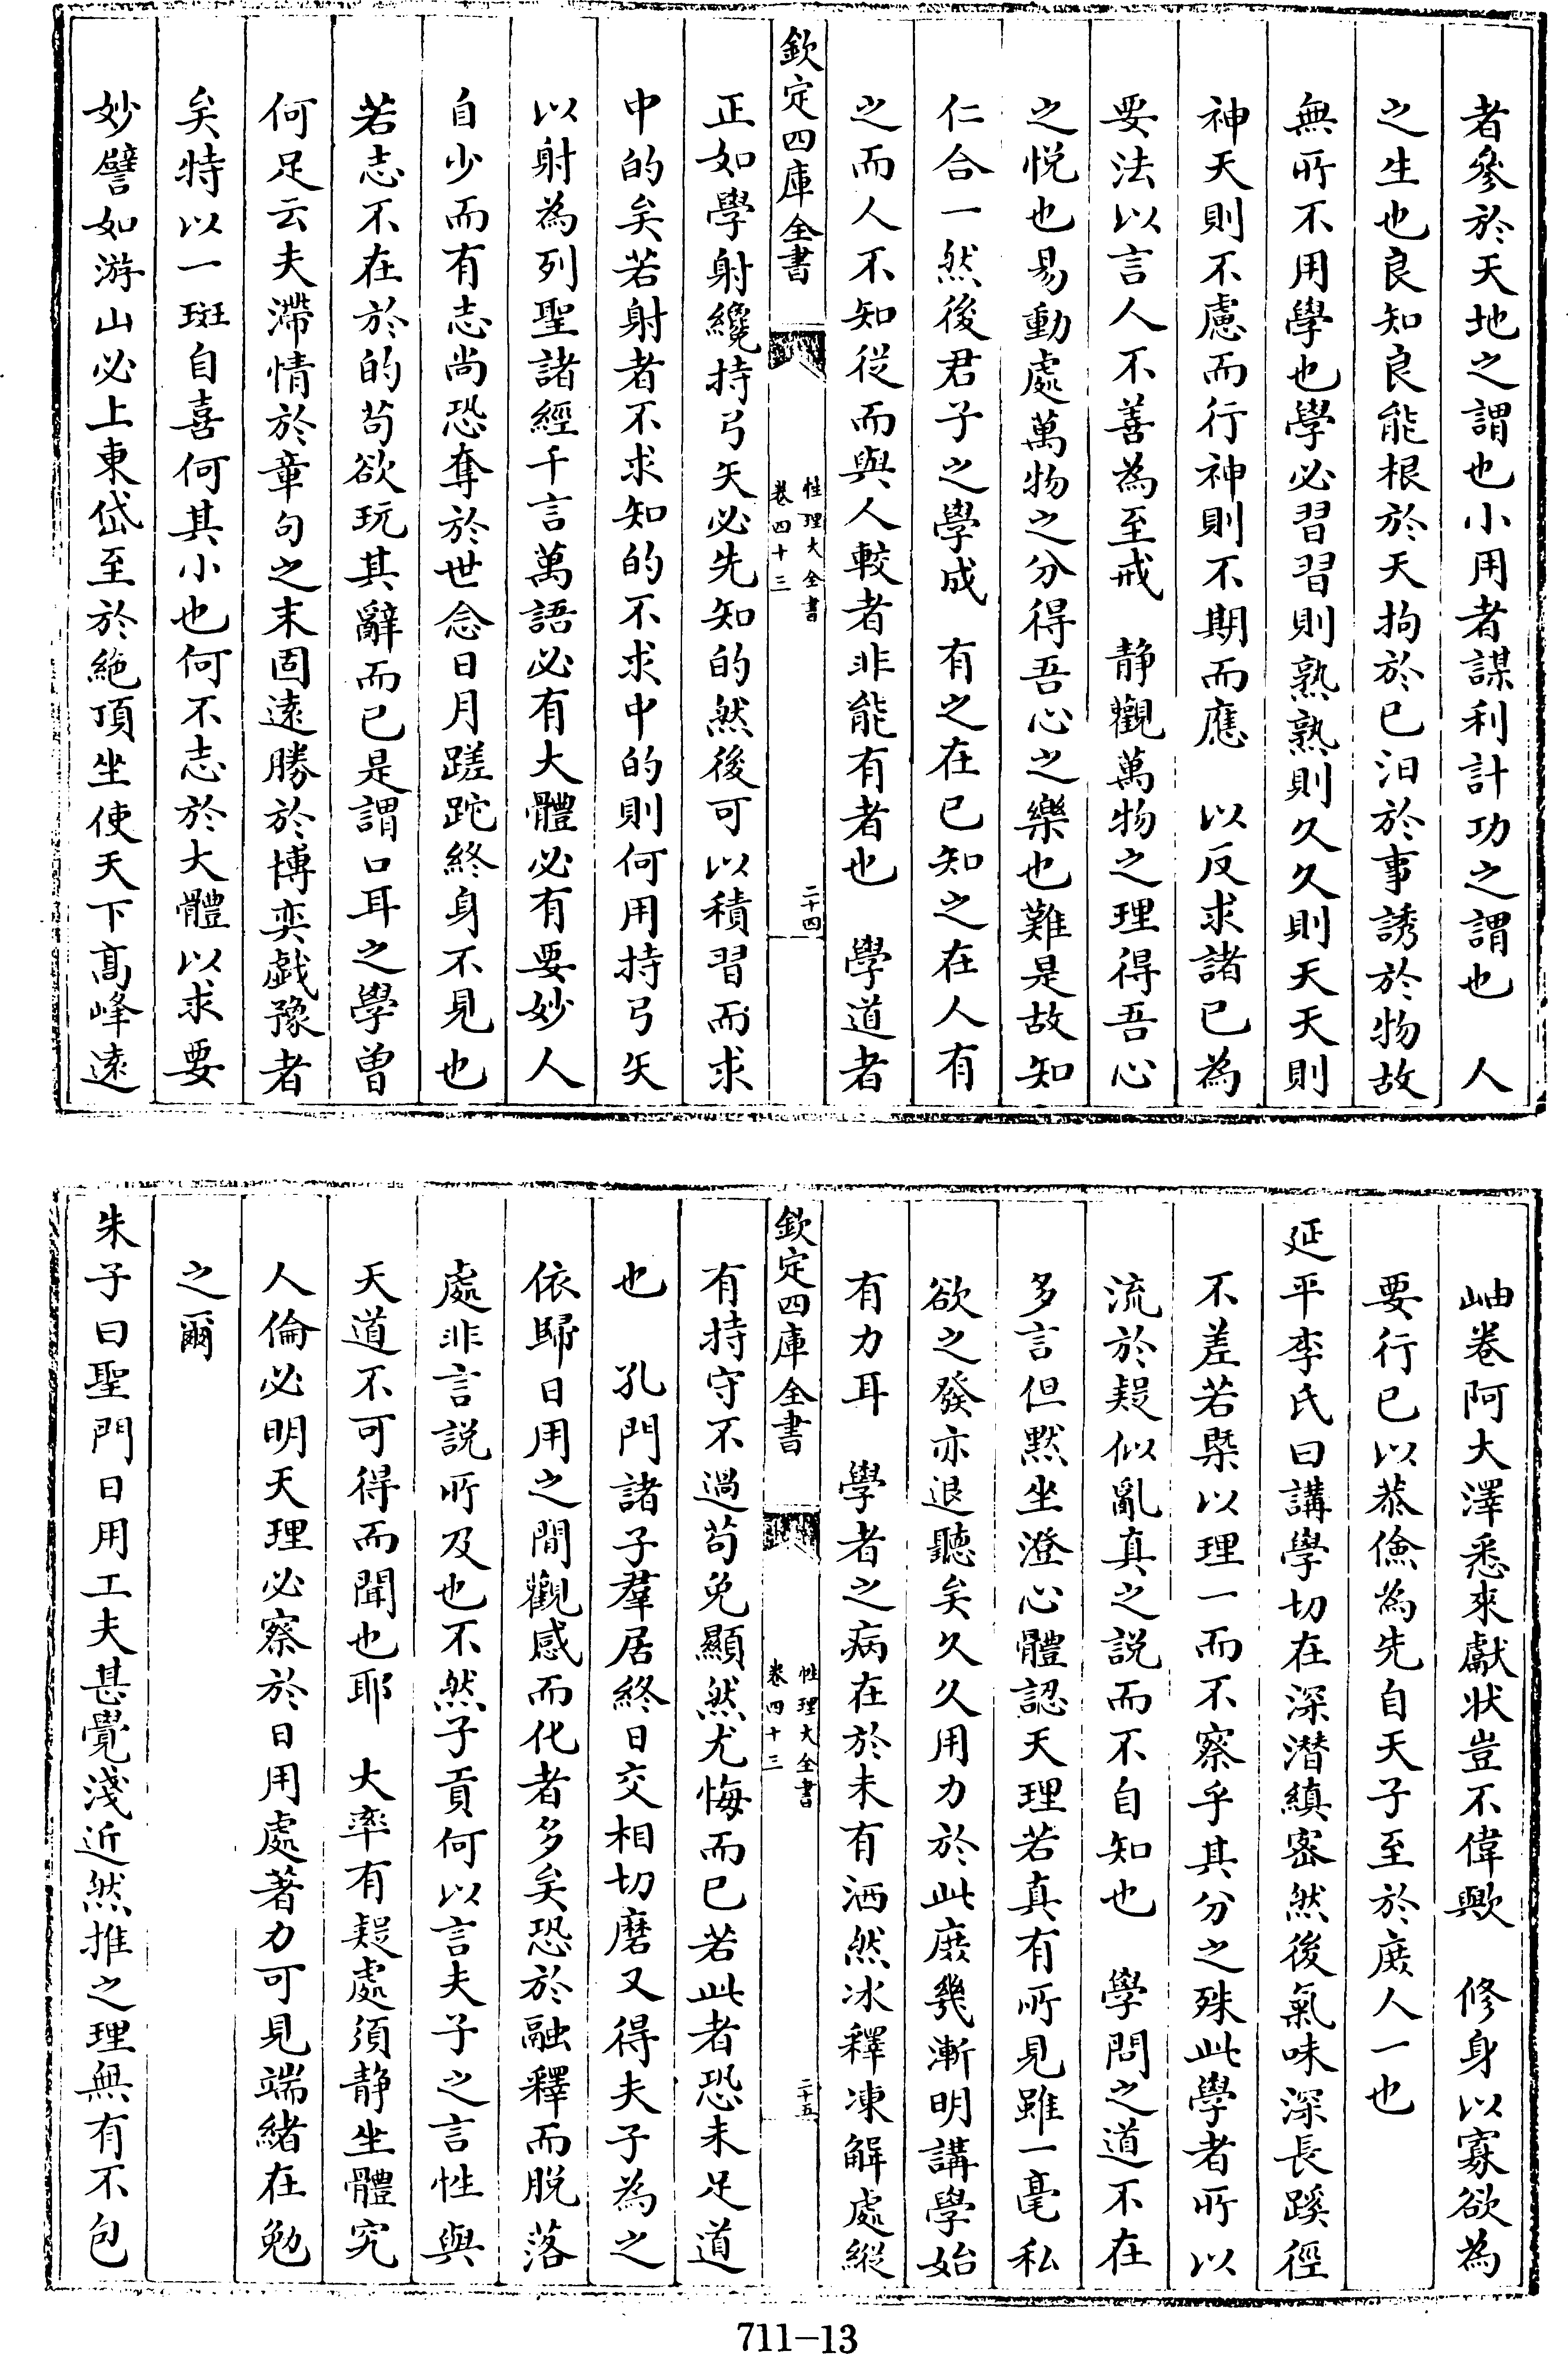 者參於天地之謂也小用者謀利計功之謂也　人
之生也良知良能根於天拘於已汨於事誘於物故
無所不用學也學必習習則熟熟則久久則天天則
神天則不慮而行神則不期而應　以反求諸已為
要法以言人不善為至戒　静觀萬物之理得吾心
之悦也易動處萬物之分得吾心之樂也難是故知
仁合一然後君子之學成　有之在已知之在人有
之而人不知從而與人較者非能有者也　學道者
欽定四庫全書
性理大全書
卷四十三
二十四
正如學射纔持弓矢必先知的然後可以積習而求
中的矣若射者不求知的不求中的則何用持弓矢
以射為列聖諸經千言萬語必有大體必有要妙人
自少而有志尚恐奪於世念日月蹉跎終身不見也
若志不在於的茍欲玩其辭而已是謂口耳之學曾
何足云夫滯情於章句之末固遠勝於博奕戲豫者
矣特以一斑自喜何其小也何不志於大體以求要
妙譬如游山必上東岱至於絶頂坐使天下髙峰逺
岫卷阿大澤悉來獻狀豈不偉歟　修身以寡欲為
要行已以恭儉為先自天子至於庶人一也
延平李氏曰講學切在深潜縝密然後氣味深長蹊徑
不差若槩以理一而不察乎其分之殊此學者所以
流於疑似亂真之說而不自知也　學問之道不在
多言但黙坐澄心體認天理若真有所見雖一毫私
欲之發亦退聽矣久久用力於此庶幾漸明講學始
有力耳　學者之病在於未有洒然冰釋凍解處縱
欽定四庫全書
性理大全書
卷四十三
二十五
有持守不過茍免顯然尤悔而已若此者恐未足道
也　孔門諸子羣居終日交相切磨又得夫子為之
依歸日用之間觀感而化者多矣恐於融釋而脱落
處非言說所及也不然子貢何以言夫子之言性與
天道不可得而聞也耶　大率有疑處須静坐體究
人倫必明天理必察於日用處著力可見端緒在勉
之爾
朱子曰聖門日用工夫甚覺淺近然推之理無有不包
711—13